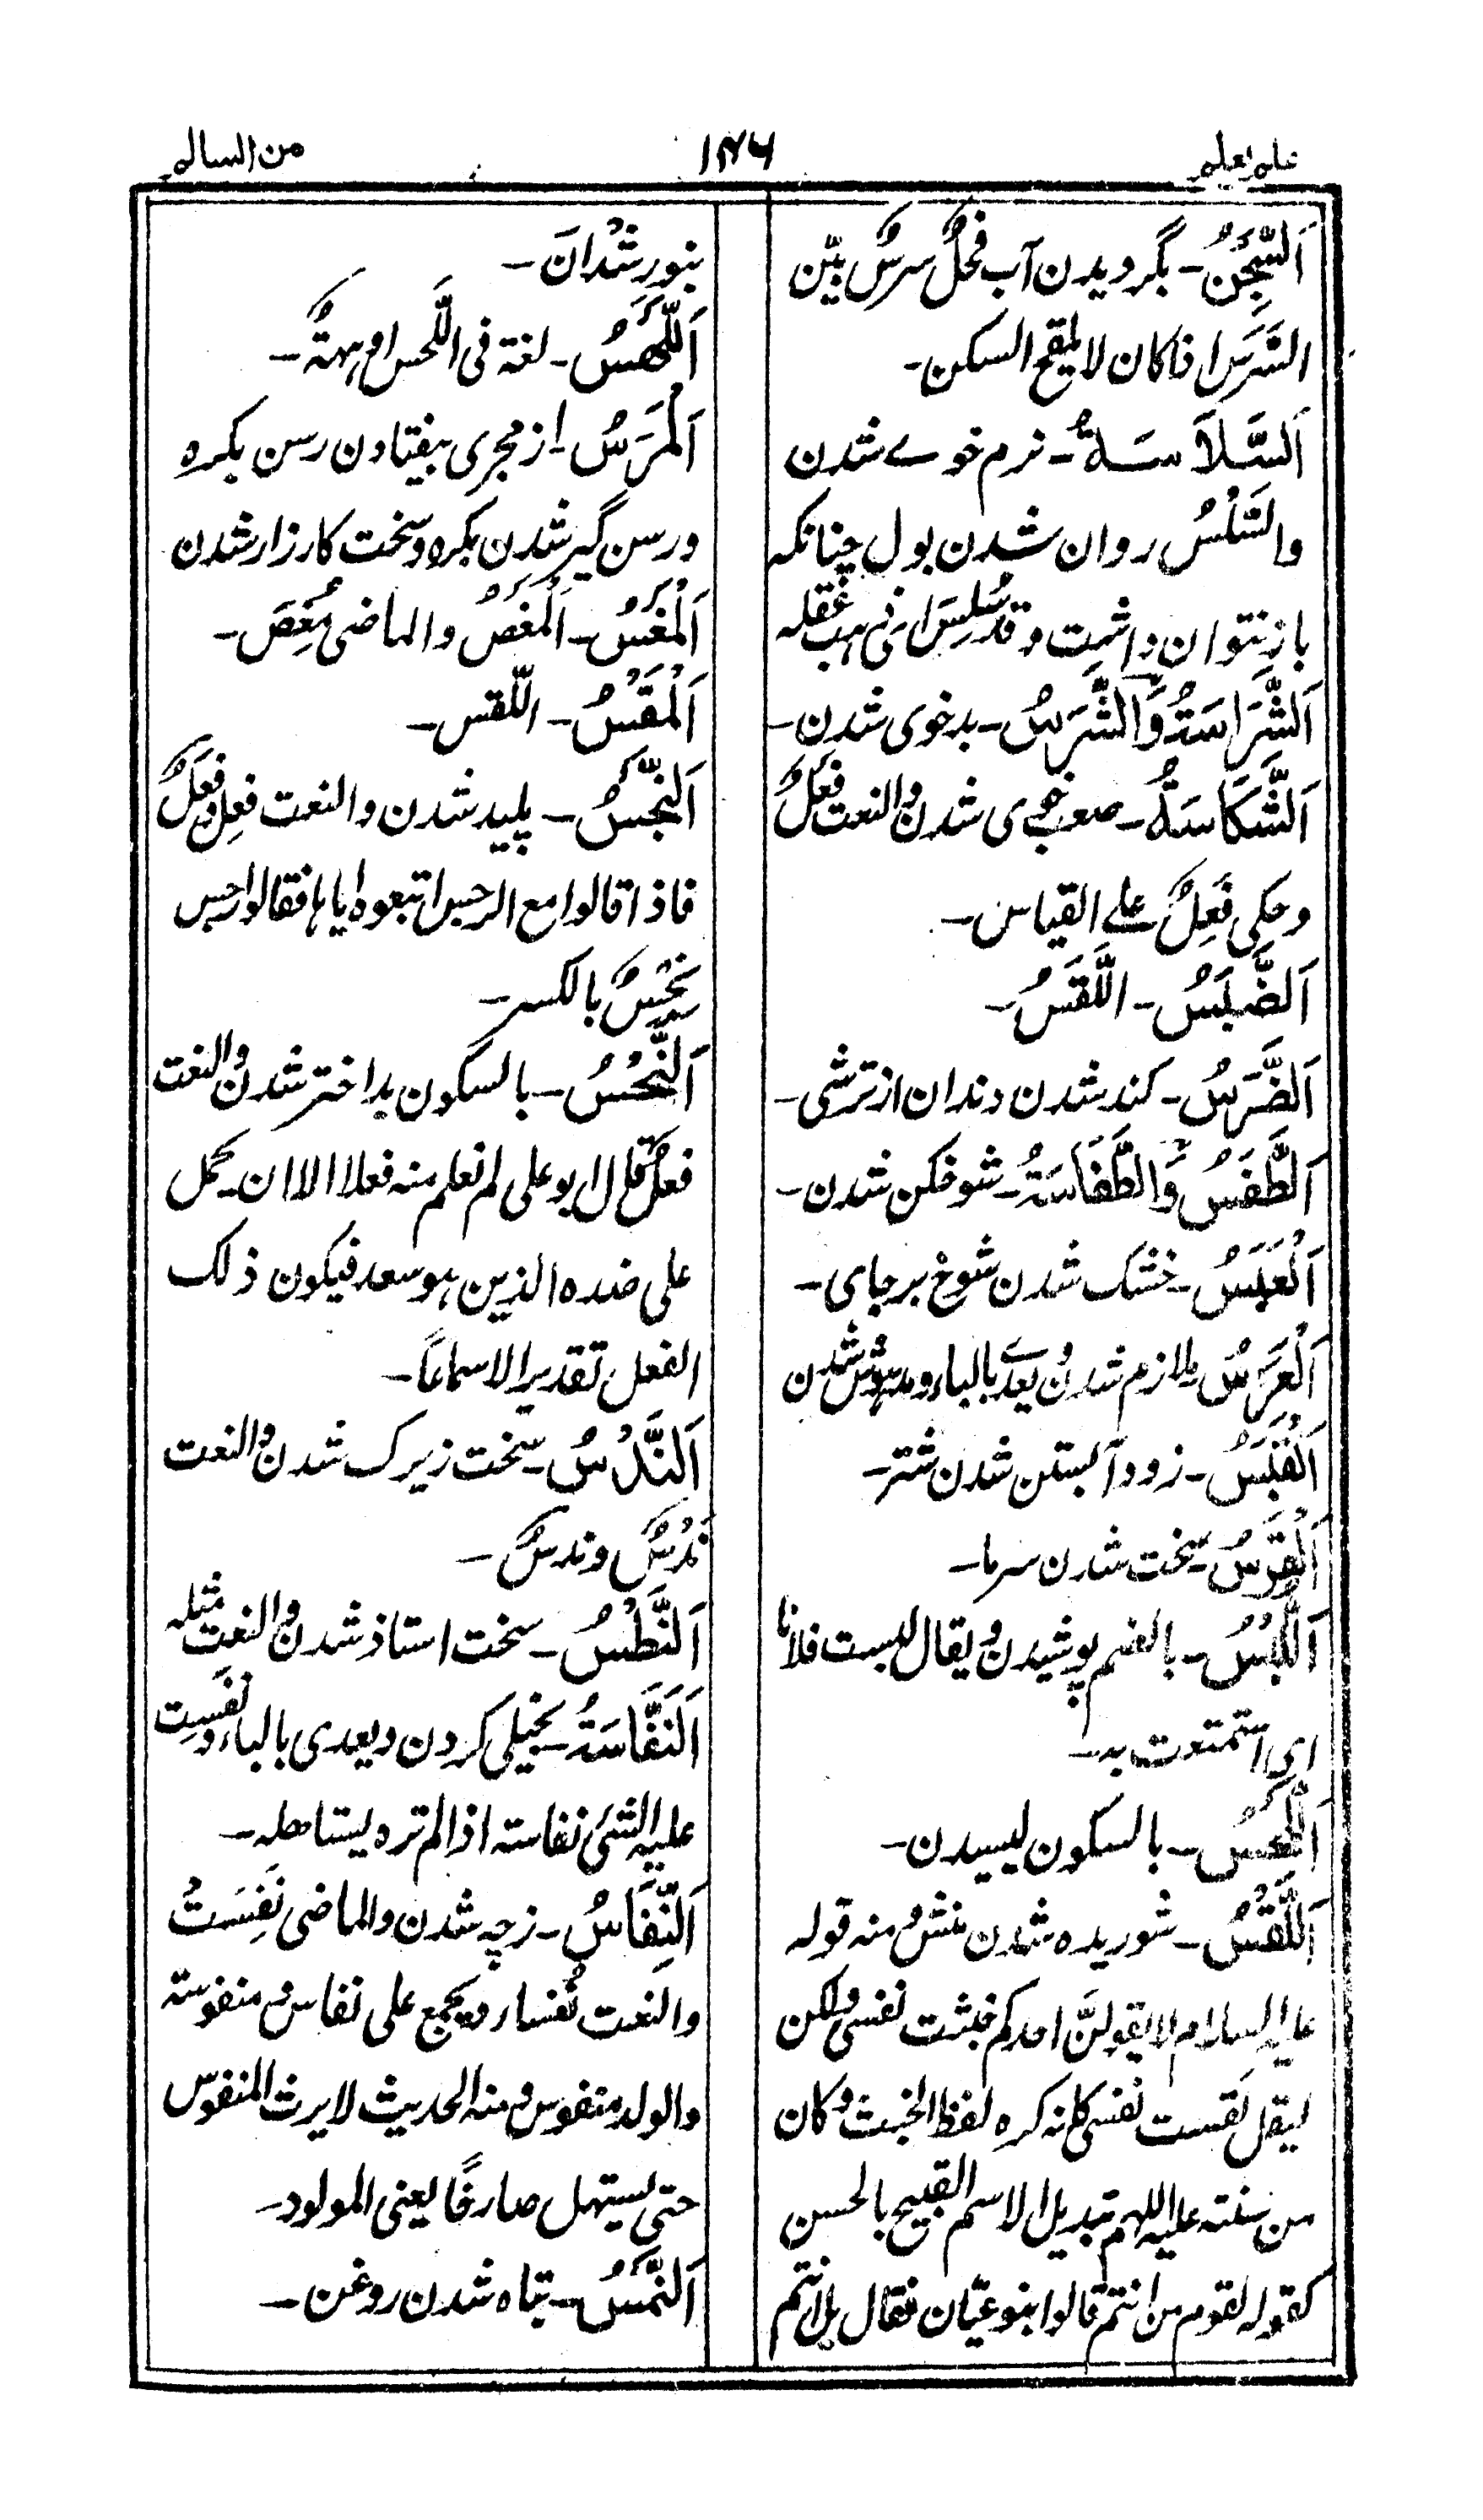 علم یعلم
۱۴۶
من السالم
اَلسَّجَنُ ۔ بگردیدن آب فَحْلٌ سَرِسٌ بَیِّن
السَّرَس اذا کان لا یلقح السکن ۔
اَلسَّلاَسَةُ ۔ نرم خوے شدن
والسَّلَسُ روان شدن بول چنانکه
باز نتوان داشت وقد سُلِسَ ای ذهب عقله
اَلشَّرَاسَةُ وَالشَّرَسُ ۔ بدخوی شدن ۔
اَلشَّکَاسَةُ ۔ صعب خوی شدن والنعت فَعْلٌ
وحکی فَعِلٌ علی القیاس ۔
اَلضَّبَسُ ۔ اللَّقَسُ ۔
اَلضَّرَسُ ۔ کند شدن دندان از ترشی ۔
اَلطَّفَسُ وَالطَّفَاسَةُ ۔ شوخگن شدن ۔
اَلْعَبَسُ ۔ خشک شدن شوخ بر جای ۔
اَلْعَرَسُ ملازم شدن ویعدے بالباء ومدهوش شدن
اَلْقَبَسُ ۔ زود آبستن شدن شتر ۔
اَلْقَرَسُ ۔ سخت شدن سرما ۔
اَللُّبْسُ ۔ بالضم پوشیدن ویقال لبست فلانا
ای استمتعت به ۔
اَللَّحْسُ ۔ بالسکون لیسیدن ۔
اَللَّقَسُ ۔ شوریده شدن منش ومنه قوله
علیه السلام لا یقولنَّ احدکم خبثت نفسی ولکن
لیقل لقست نفسی کانه کره لفظ الخبث وکان
من سنته علیه السلام تبدیل الاسم القبیح بالحسن
کقوله لقوم من انتم قالوا بنو غیّان فقال بل انتم
بنو رشدان ۔
اَللَّهَسُ ۔ لغة فی اللَّحس او ههةٌ ۔
اَلْمَرَسُ ۔ از مجری بیفتادن رسن بکره
ورسن گیر شدن بکره وسخت کارزار شدن
اَلْمَغَسُ ۔ اَلْمَغَصُ والماضی مُغِصَ ۔
اَلْمَقَسُ ۔ اللّقس ۔
اَلنَّجَسُ ۔ پلید شدن والنعت فَعِلٌ وفَعَلٌ
فاذا قالوا مع الرجس اتبعوه ایاها فقالوا رجس
نِجْسٌ بالکسر ۔
اَلنَّحْسُ ۔ بالسکون بد اختر شدن والنعت
فَعْلٌ قال ابو علی لم نعلم منه فعلا الا ان یحمل
علی ضده الذین هو سعد فیکون ذلک
الفعل تقدیرا لا سماعًا ۔
اَلنَّدَسُ ۔ سخت زیرک شدن والنعت
نَدُسٌ وندسٌ ۔
اَلنَّطَسُ ۔ سخت استاذ شدن والنعت مثله
اَلنَّفَاسَةُ ۔ بخیلی کردن ویعدی بالباء ونَفِست
علیه الشیء نفاسته اذا لم تره یستاهله ۔
اَلنِّفَاسُ ۔ زچه شدن والماضی نَفِسَتْ
والنعت نُفَساء ویجمع علی نفاس ومنفوسة
والولد منفوس ومنه الحدیث لا یرث المنفوس
حتی یستهل صارخًا یعنی المولود ۔
اَلنَّمَسُ ۔ تباه شدن روغن ۔